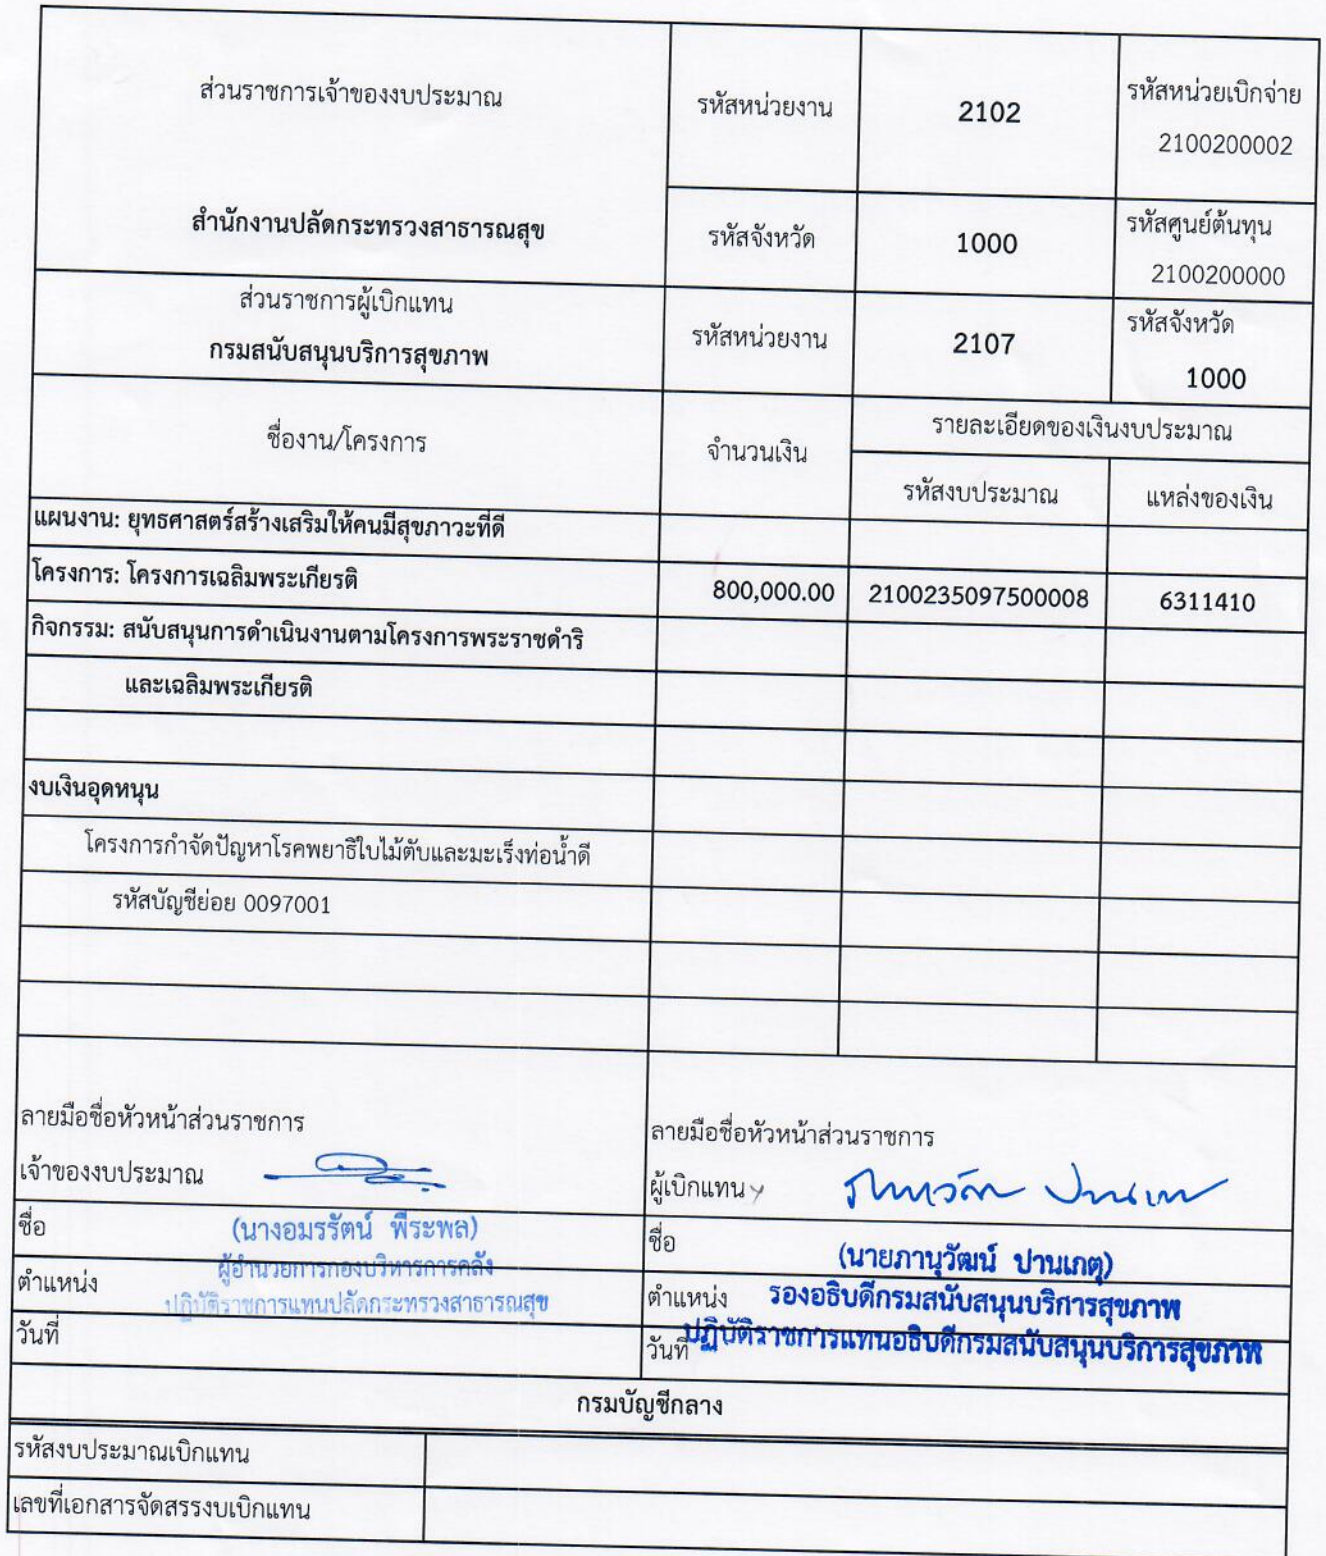 ส่วนราชการเจ้าของงบประมาณ
สำนักงานปลัดกระทรวงสาธารณสุข
รหัสหน่วยงาน
2102
รหัสหน่วยเบิกจ่าย
2100200002
รหัสจังหวัด
1000
รหัสศูนย์ต้นทุน
2100200000
ส่วนราชการผู้เบิกแทน
กรมสนับสนุนบริการสุขภาพ
รหัสหน่วยงาน
2107
รหัสจังหวัด
1000
ชื่องาน/โครงการ
จำนวนเงิน
รายละเอียดของเงินงบประมาณ
รหัสงบประมาณ
แหล่งของเงิน
แผนงาน: ยุทธศาสตร์สร้างเสริมให้คนมีสุขภาวะที่ดี
โครงการ: โครงการเฉลิมพระเกียรติ
800,000.00
2100235097500008
6311410
กิจกรรม: สนับสนุนการดำเนินงานตามโครงการพระราชดำริ
และเฉลิมพระเกียรติ
งบเงินอุดหนุน
โครงการกำจัดปัญหาโรคพยาธิใบไม้ตับและมะเร็งท่อน้ำดี
รหัสบัญชีย่อย 0097001
ลายมือชื่อหัวหน้าส่วนราชการ
เจ้าของงบประมาณ
ชื่อ (นางอมรรัตน์ พีระพล)
ผู้อำนวยการกองบริหารการคลัง
ตำแหน่ง
ปฏิบัติราชการแทนปลัดกระทรวงสาธารณสุข
วันที่
ลายมือชื่อหัวหน้าส่วนราชการ
ผู้เบิกแทน ภานุวัฒน์ ปานเกตุ
ชื่อ (นายภานุวัฒน์ ปานเกตุ)
ตำแหน่ง รองอธิบดีกรมสนับสนุนบริการสุขภาพ
วันที่ ปฏิบัติราชการแทนอธิบดีกรมสนับสนุนบริการสุขภาพ
กรมบัญชีกลาง
รหัสงบประมาณเบิกแทน
เลขที่เอกสารจัดสรรงบเบิกแทน